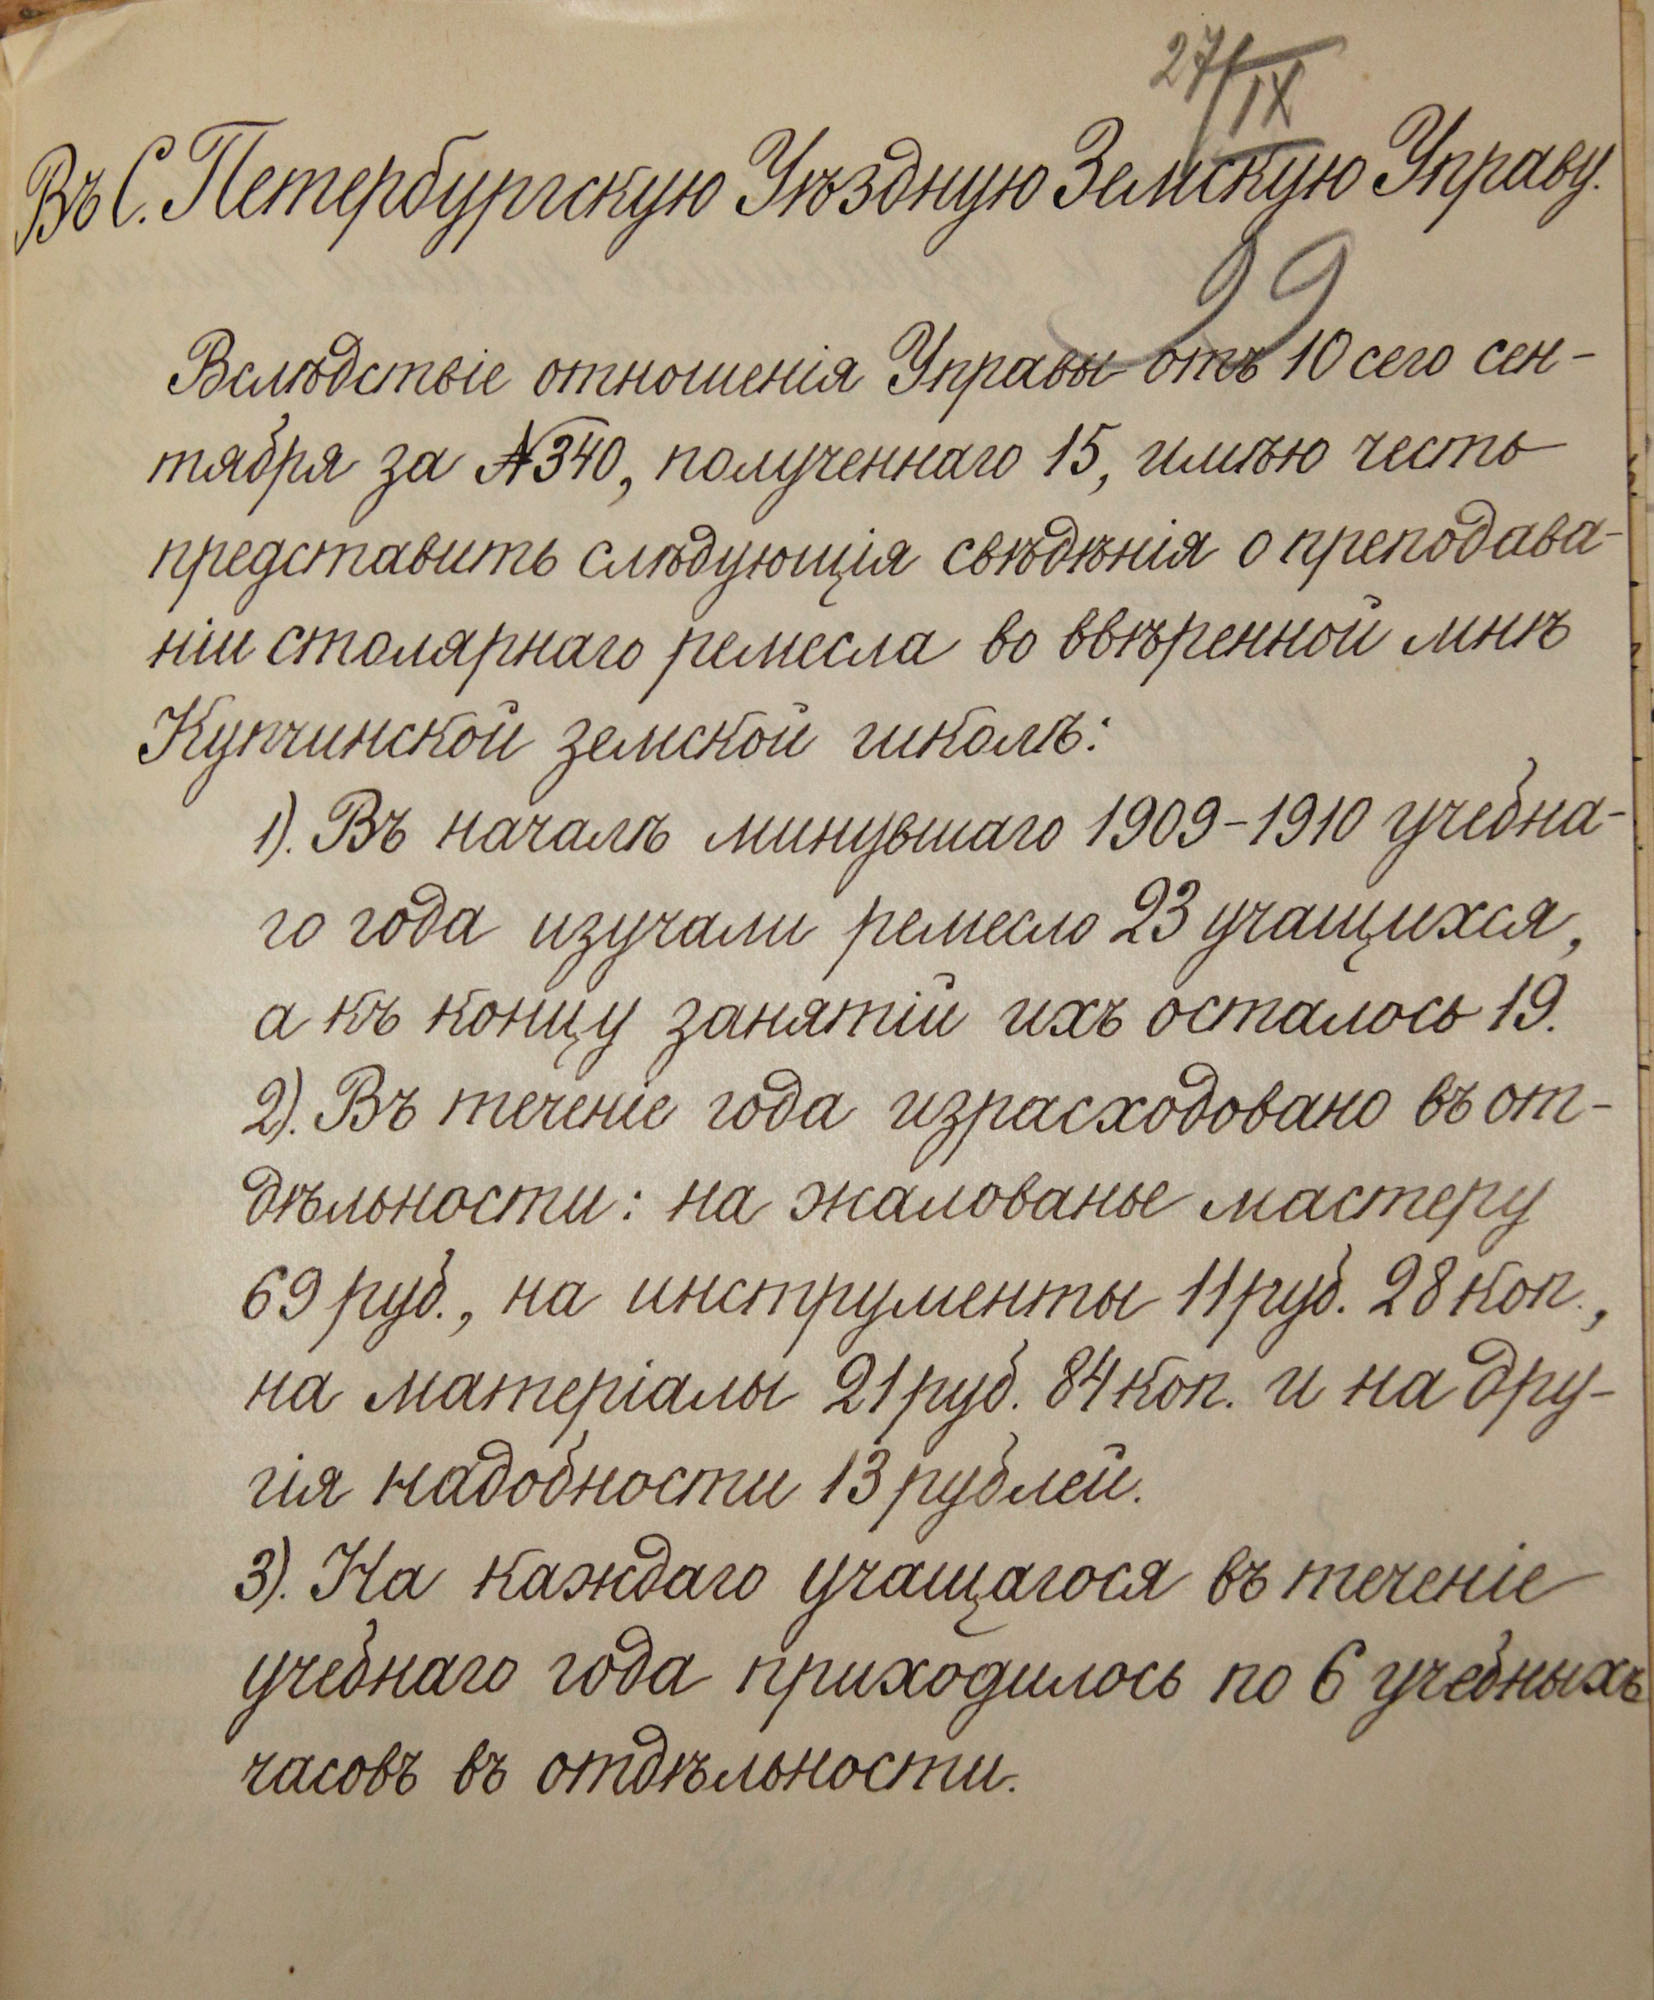 27/IX
Въ С. Петербургскую Уѣздную Земскую Управу.
99
Вслѣдствіе отношенія Управы отъ 10 сего сен-
тября за №340, полученнаго 15, имѣю честь
представить слѣдующія свѣдѣнія о преподава-
ніи столярнаго ремесла во ввѣренной мнѣ
Купчинской земской школѣ:
1). Въ началѣ минувшаго 1909-1910 учебна-
го года изучали ремесло 23 учащихся,
а къ концу занятій ихъ осталось 19.
2). Въ теченіе года израсходовано въ от-
дѣльности: на жалованье мастеру
69 руб., на инструменты 11 руб. 28 коп.,
на матеріалы 21 руб. 84 коп. и на дру-
гія надобности 13 рублей.
3). На каждаго учащагося въ теченіе
учебнаго года приходилось по 6 учебныхъ
часовъ въ отдѣльности.